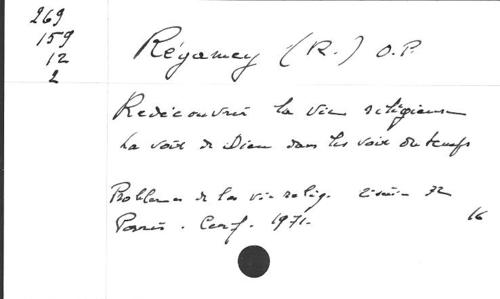 269
159
12
2
Régamey (R.) O.P.
Redécouvrir la vie religieuse
La voix de Dieu dans les voix du temps
Problèmes de la vie relig. 2 série 32
Paris. Cerf. 1971.
16